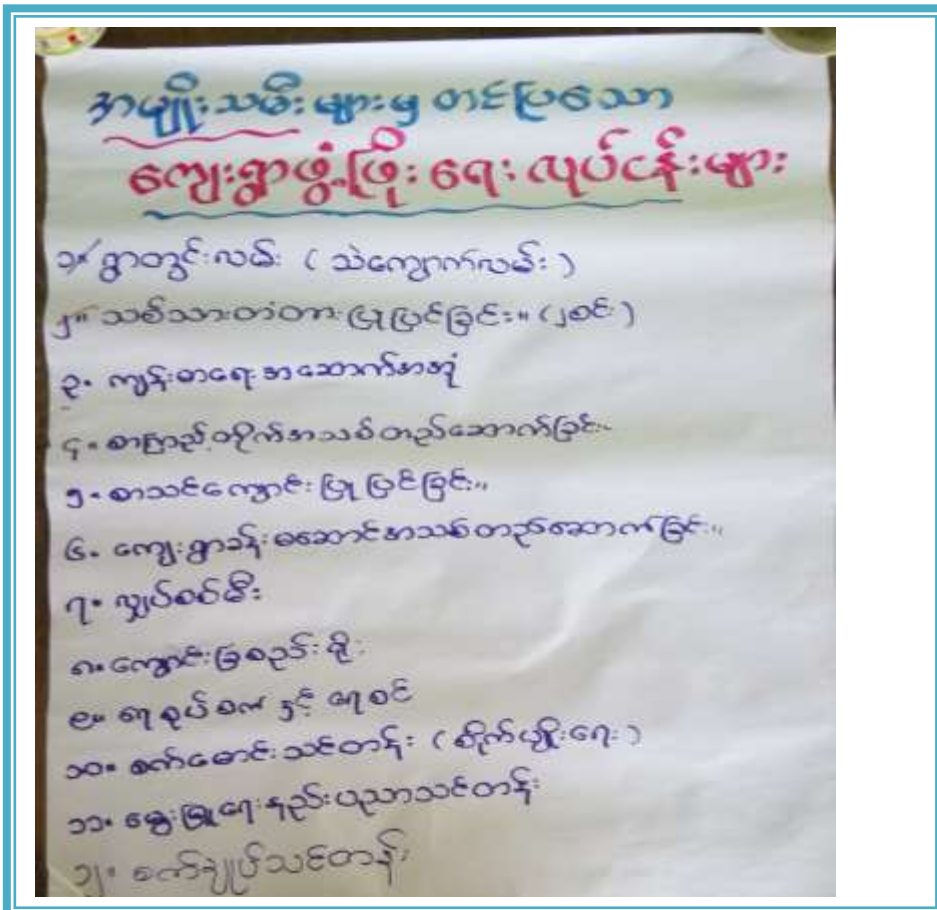 အမျိုးသမီးများမှ တင်ပြသော
ကျေးရွာဖွံ့ဖြိုးရေးလုပ်ငန်းများ
၁။ ရွာတွင်းလမ်း (သဲကျောက်လမ်း)
၂။ သစ်သားတံတားပြုပြင်ခြင်း။ (၂စင်း)
၃။ ကျန်းမာရေးအဆောက်အအုံ
၄။ စာကြည့်တိုက်အသစ်တည်ဆောက်ခြင်း။
၅။ စာသင်ကျောင်းပြုပြင်ခြင်း။
၆။ ကျေးရွာခန်းမဆောင်အသစ်တည်ဆောက်ခြင်း။
၇။ လျှပ်စစ်မီး
၈။ ကျောင်းခြံစည်းရိုး
၉။ ရေစုပ်စက် နှင့် ရေစင်
၁၀။ စက်မောင်းသင်တန်း (စိုက်ပျိုးရေး)
၁၁။ မွေးမြူရေးနည်းပညာသင်တန်း
၁၂။ စက်ချုပ်သင်တန်း